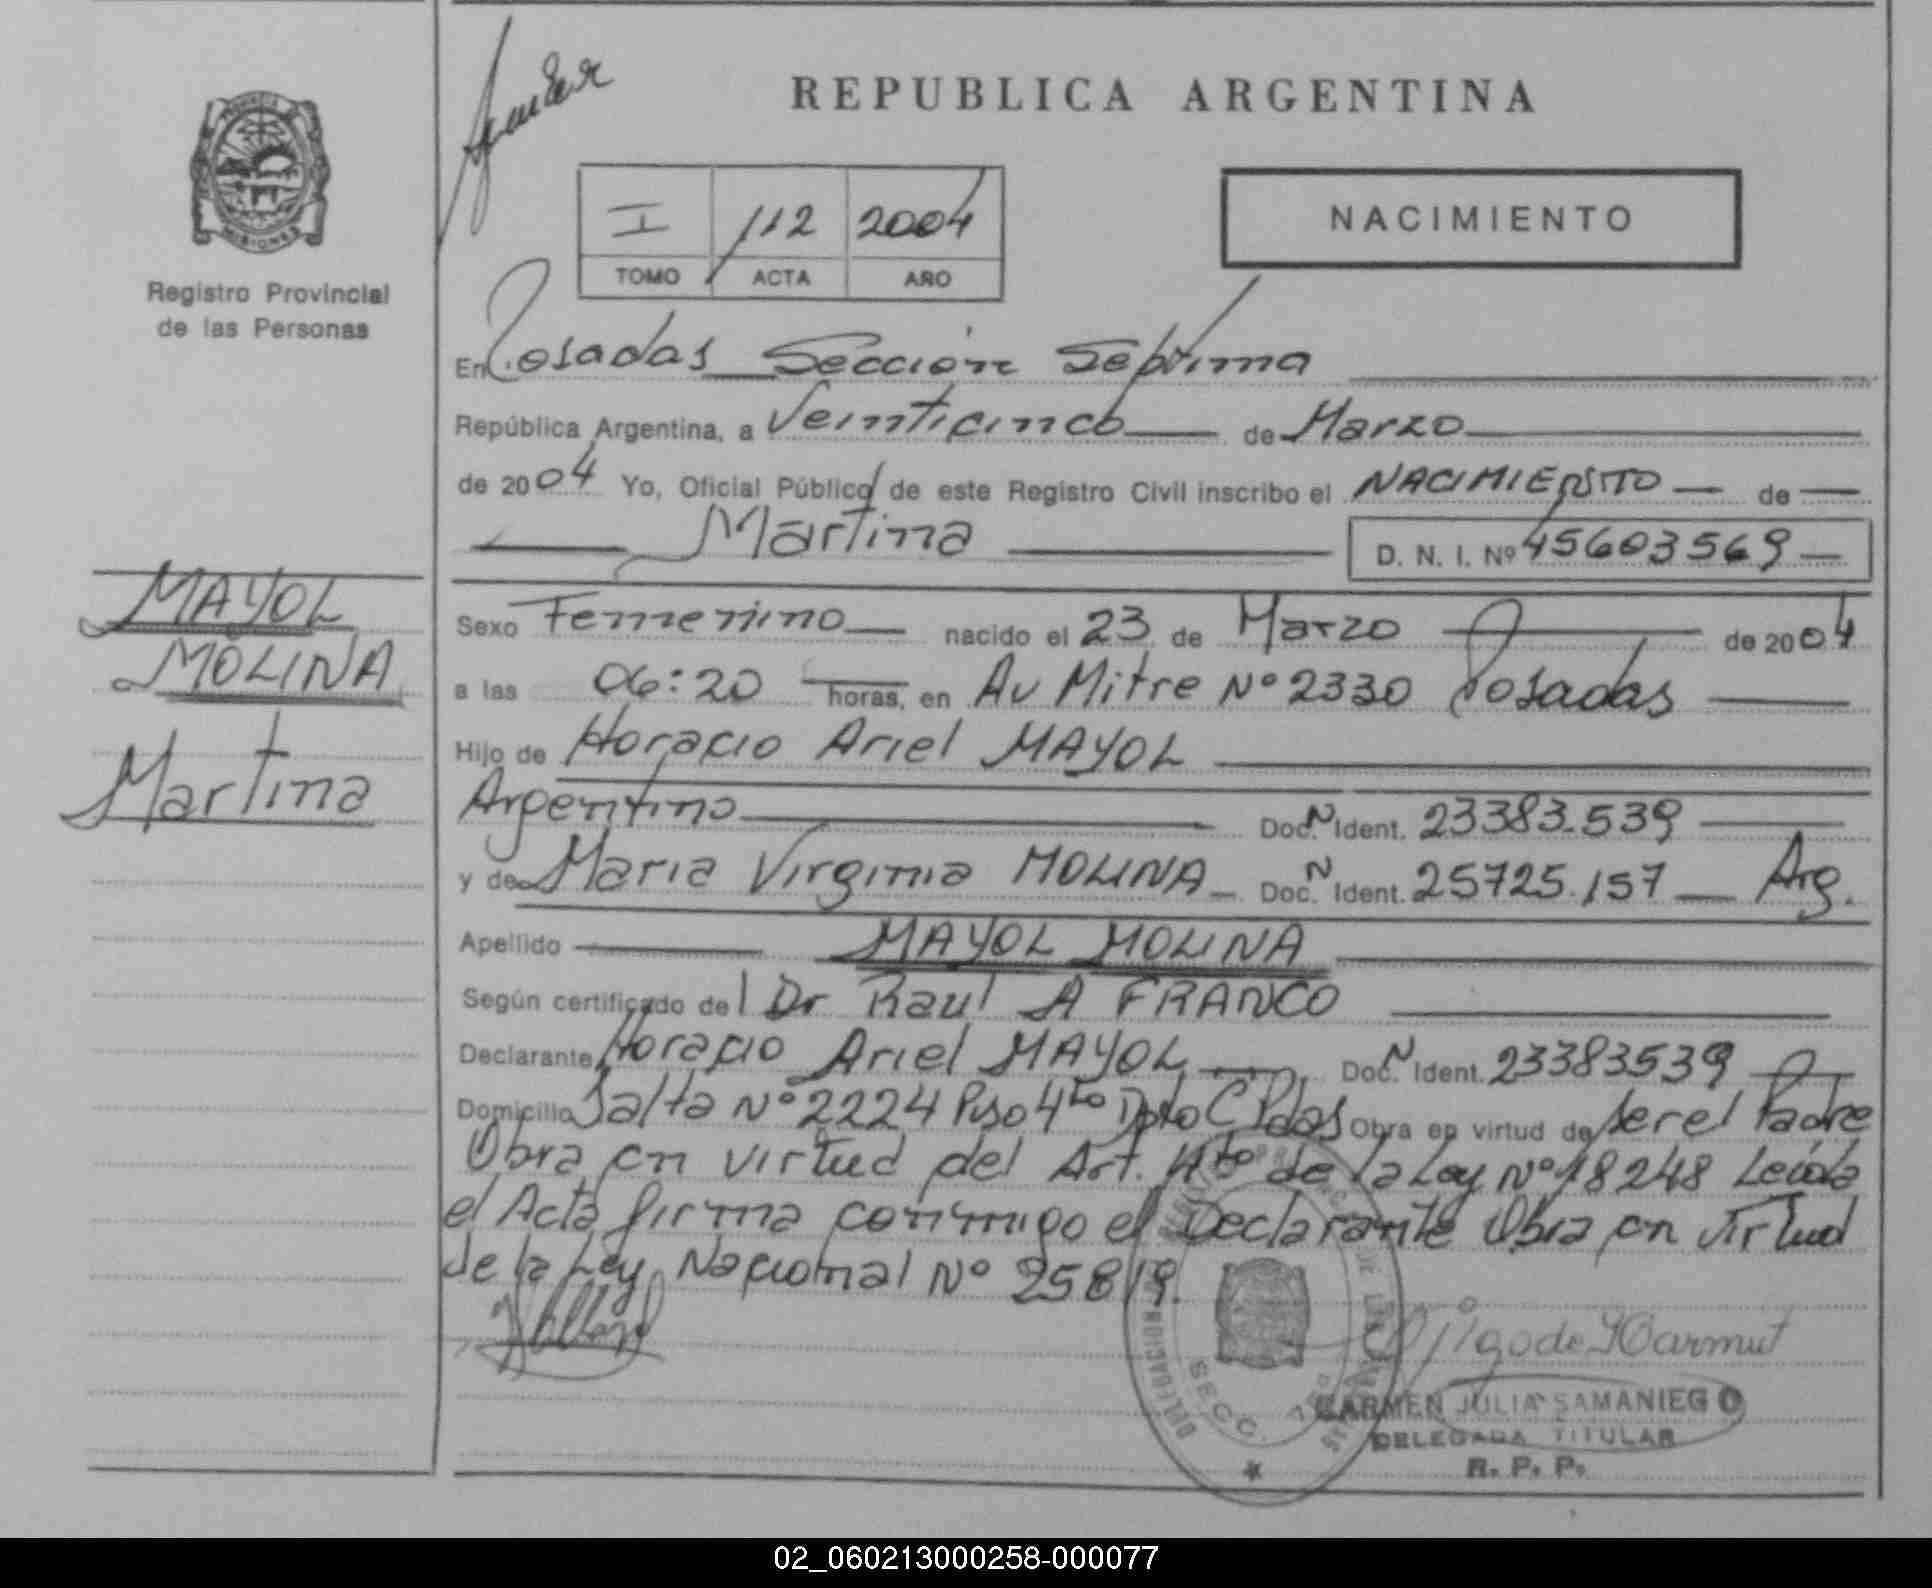 REPUBLICA ARGENTINA
MISIONES
Registro Provincial
de las Personas
I 112 2004
TOMO ACTA AÑO
NACIMIENTO
En Posadas Sección Septima
República Argentina, a Veinticinco de Marzo
de 2004 Yo, Oficial Público de este Registro Civil inscribo el NACIMIENTO de
Martina D. N. I. Nº 45603569
MAYOL
MOLINA
Martina
Sexo Femenino nacido el 23 de Marzo de 2004
a las 06:20 horas, en Av Mitre Nº 2330 Posadas
Hijo de Horacio Ariel MAYOL
Argentino Doc. N Ident. 23383.539
y de Maria Virginia MOLINA Doc. N Ident. 25725.157 Arg.
Apellido MAYOL MOLINA
Según certificado del Dr Raul A FRANCO
Declarante Horacio Ariel MAYOL Doc. N Ident. 23383539
Domicilio Salta Nº 2224 Piso 4to Dpto C Pdas Obra en virtud de ser el Padre
Obra en virtud del Art. 4to de la Ley Nº 18248 Leida
el Acta firma conmigo el Declarante Obra en virtud
de la Ley Nacional Nº 25819.
SECC. 7
CARMEN JULIA SAMANIEGO
DELEGADA TITULAR
R. P. P.
02_060213000258-000077